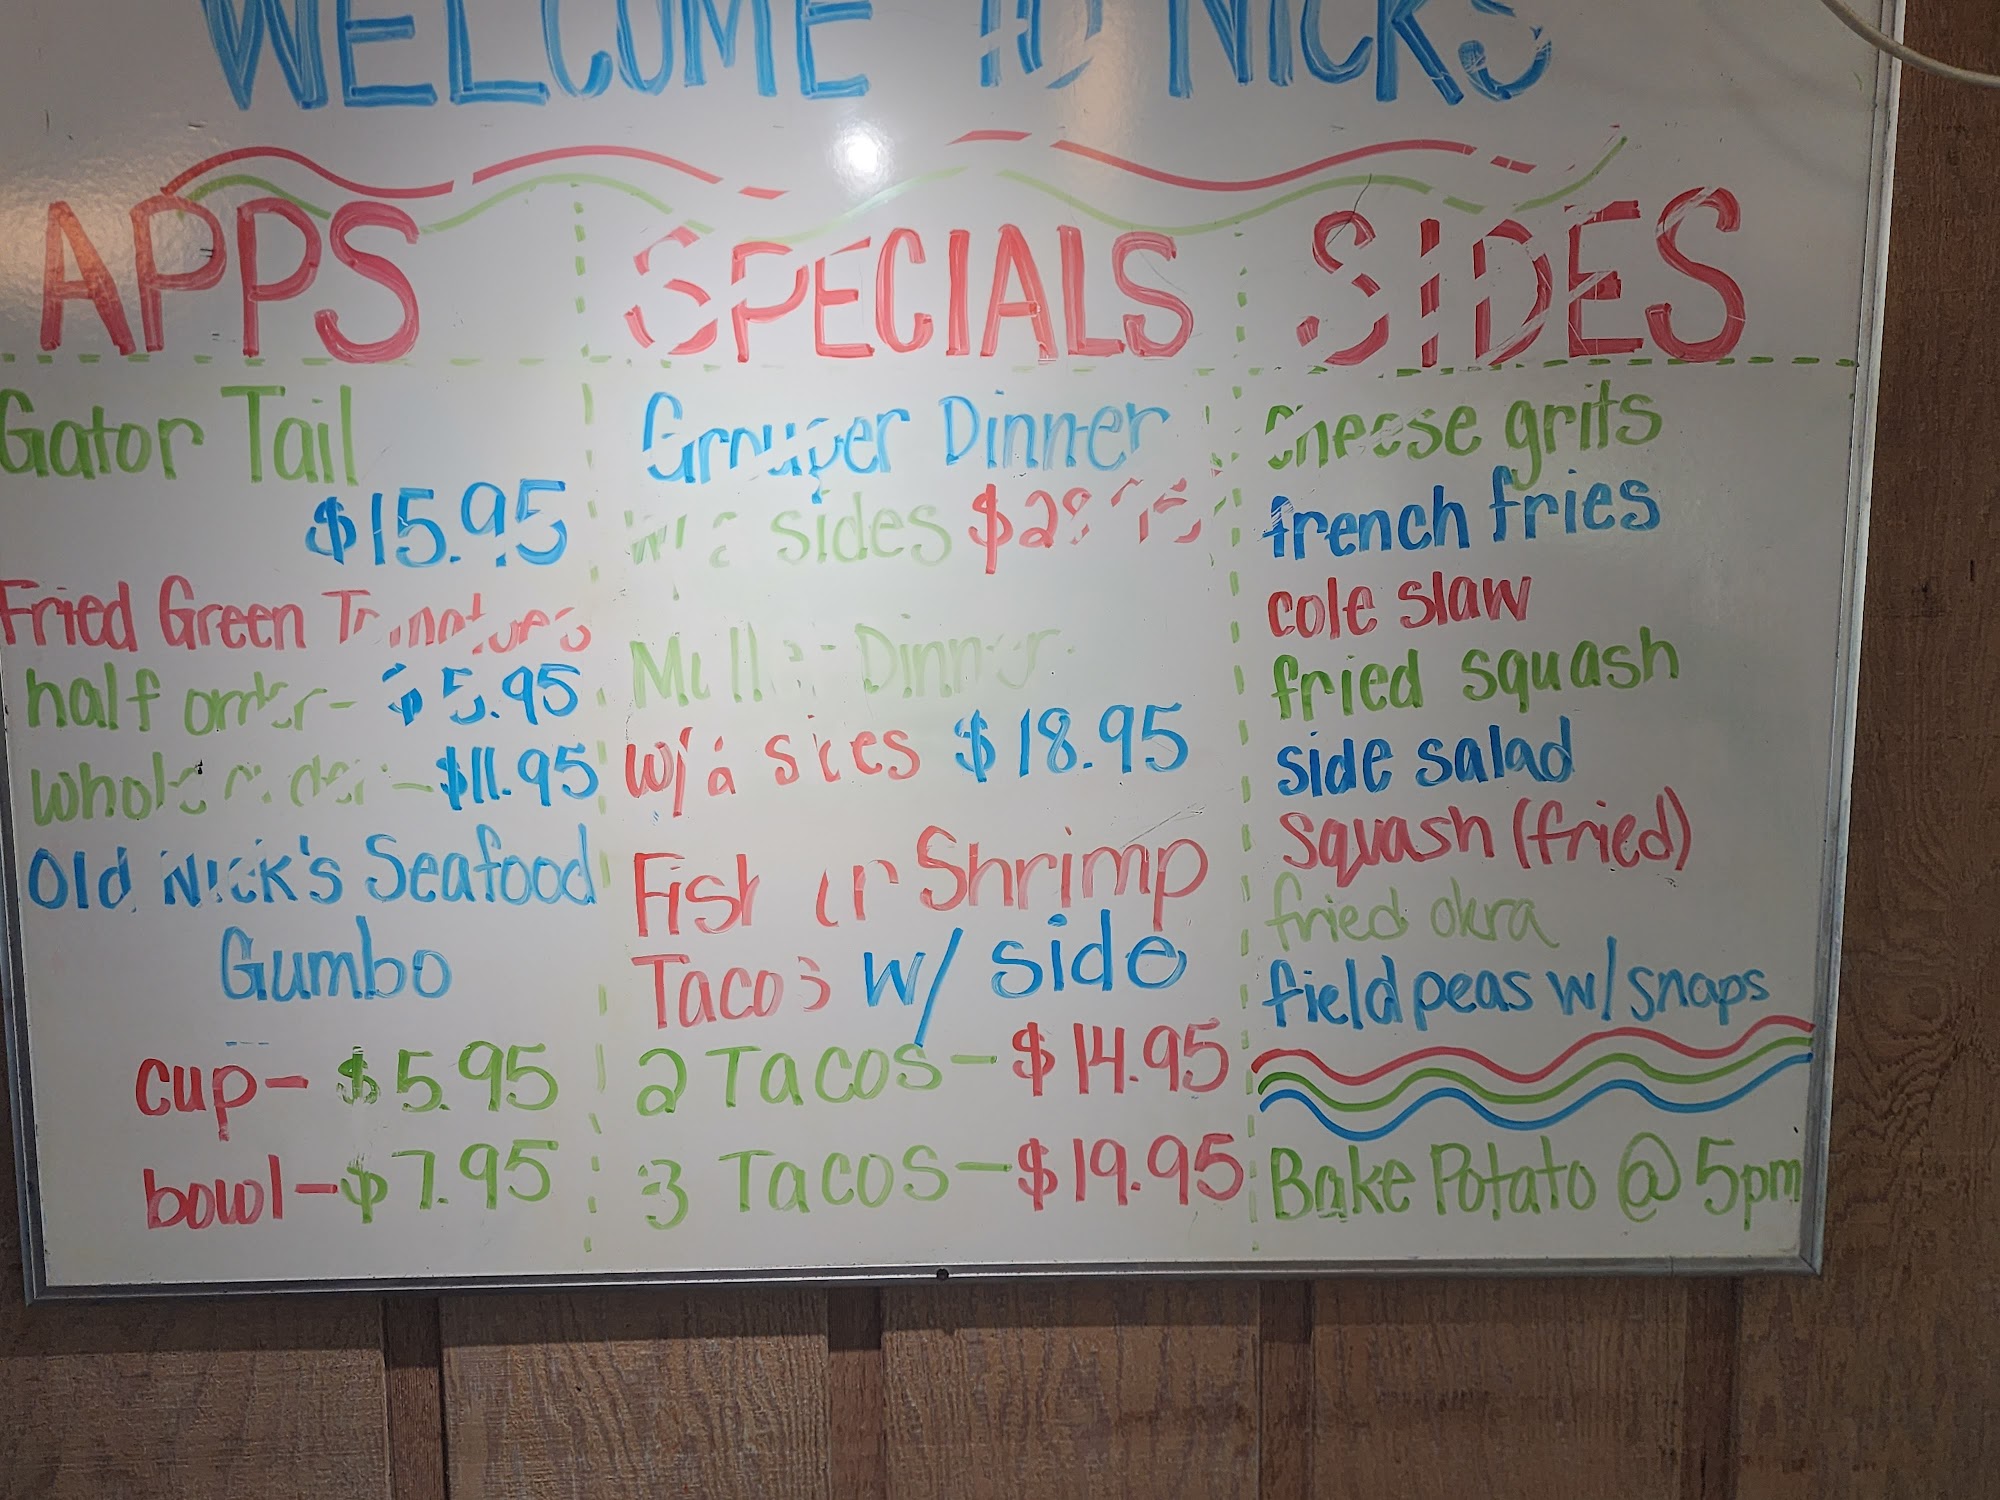 WELCOME TO NICKS
APPS
Gator Tail
$15.95
Fried Green Tomatoes
half order - $5.95
whole order - $11.95
Old Nick's Seafood
Gumbo
cup - $5.95
bowl - $7.95
SPECIALS
Grouper Dinner
sides
Mullet Dinner
w/2 sides $18.95
Fish or Shrimp
Tacos w/ side
2 Tacos - $14.95
3 Tacos - $19.95
SIDES
cheese grits
french fries
cole slaw
fried squash
side salad
squash (fried)
fried okra
field peas w/ snaps
Bake Potato @ 5pm